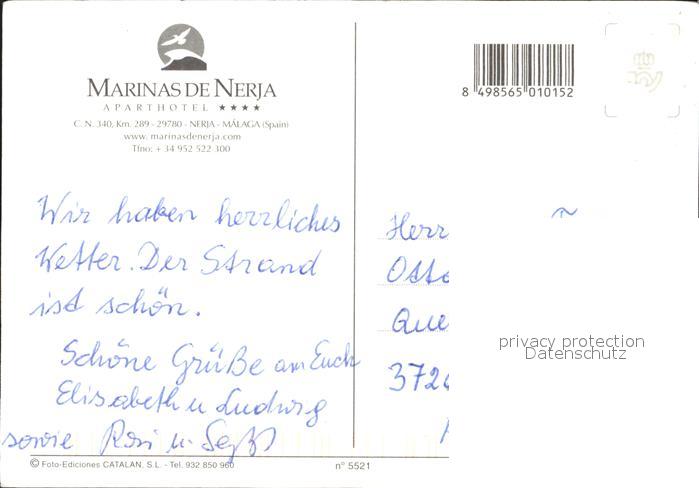 MARINAS DE NERJA
APARTHOTEL ★★★★
C. N. 340, Km. 289 - 29780 - NERJA - MÁLAGA (Spain)
www. marinasdenerja.com
Tfno: + 34 952 522 300
8 498565 010152
Wir haben herrliches
Wetter. Der Strand
ist schön.
Schöne Grüße an Euch
Elisabeth u Ludwig
sowie Rosi u.
Herr
Otto
Que
372
privacy protection
Datenschutz
© Foto-Ediciones CATALAN, S.L. - Tel. 932 850 960
n° 5521